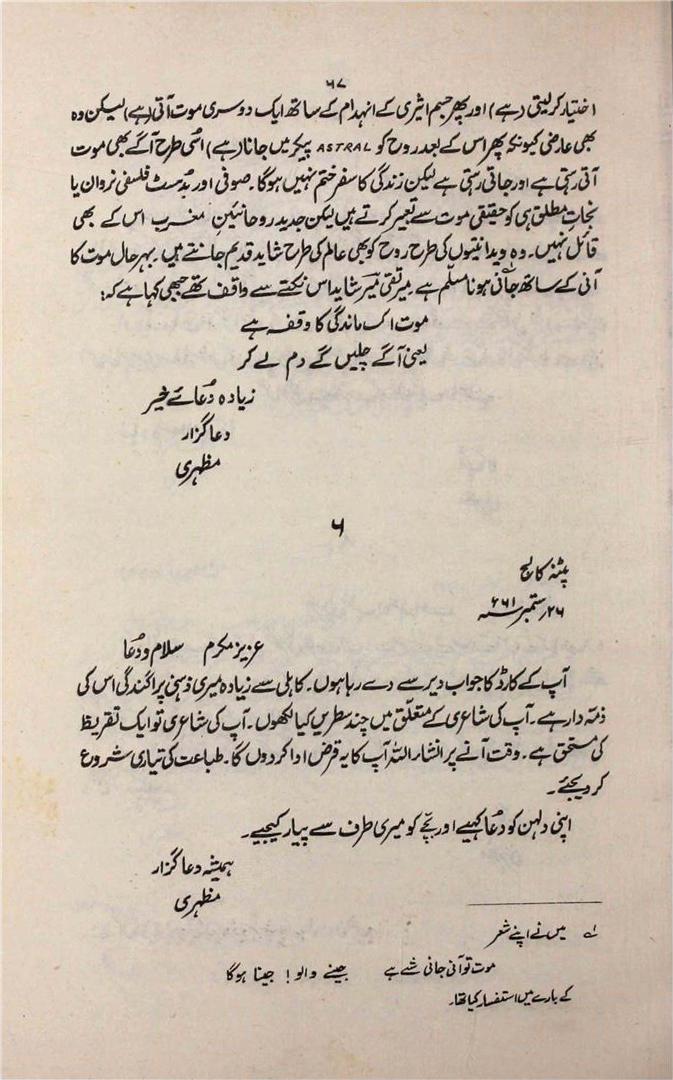 ۶۷
اختیار کرلیتی (رہے) اور پھر جسم اثیری کے انہدام کے ساتھ ایک دوسری موت آتی (ہے) لیکن وہ
بھی عارضی کیونکہ پھر اس کے بعد روح کو ASTRAL پیکر میں جانا (رہے) اسی طرح آگے بھی موت
آتی رہتی ہے اور جاتی رہتی ہے لیکن زندگی کا سفر ختم نہیں ہوگا۔ صوفی اور بدھسٹ فلسفی نروان یا
نجات مطلق ہی کو حقیقی موت سے تعبیر کرتے ہیں لیکن جدید روحانیئین مغرب اس کے بھی
قائل نہیں۔ وہ ویدانتیوں کی طرح روح کو بھی عالم کی طرح شاید قدیم جانتے ہیں۔ بہرحال موت کا
آنی کے ساتھ جانی ہونا مسلّم ہے میر تقی میرؔ شاید اس نکتے سے واقف تھے جبھی کہا ہے کہ:
موت اک ماندگی کا وقفہ ہے
یعنی آگے چلیں گے دم لے کر
زیادہ دعائے خیر
دعا گزار
مظہری
۶
پٹنہ کالج
۲۶؍ ستمبر ۶۱ء
عزیز مکرم سلام و دعا
آپ کے کارڈ کا جواب دیر سے دے رہا ہوں۔ کاہلی سے زیادہ میری ذہنی پراگندگی اس کی
ذمہ دار ہے۔ آپ کی شاعری کے متعلّق میں چند سطریں کیا لکھوں۔ آپ کی شاعری تو ایک تقریظ
کی مستحق ہے۔ وقت آنے پر انشاء اللہ آپ کا یہ قرض ادا کردوں گا۔ طباعت کی تیاری شروع
کردیجئے۔
اپنی دلہن کو دعا کہیے اور بچّے کو میری طرف سے پیار کیجیے۔
ہمیشہ دعا گزار
مظہری
۱؎ میں نے اپنے شعر
موت تو آنی جانی شے ہے جینے والو! جینا ہوگا
کے بارے میں استفسار کیا تھا۔